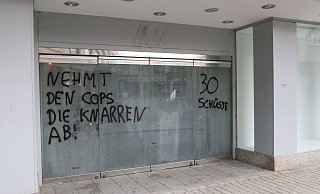 NEHMT
DEN COPS
DIE KNARREN
AB!
30
SCHÜSSE